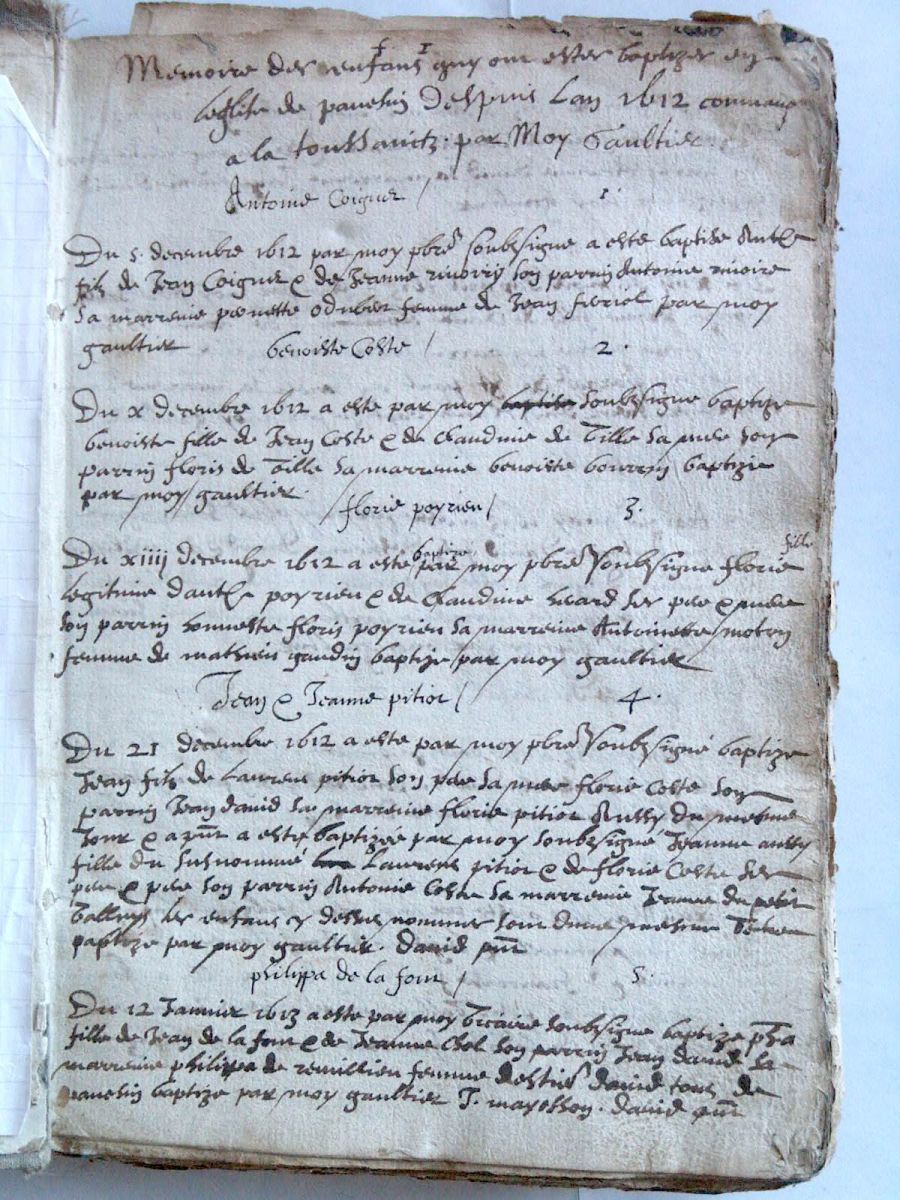 Memoire des enfans quy ont estes baptizes en
leglise de pavesin despuis Lan 1612 commanc
a la toussainctz par Moy Gaultier
Antoine Coignet / 1.
Du 5. decembre 1612 par moy pbre soubzsigne a este baptise Anthe
filz de Jean Coignet & de Jeanne son parrin Antoine
sa marreine femme de Jean fieriol par moy
gaultier benoiste Coste / 2.
Du x decembre 1612 a este par moy baptise soubzsigne baptize
benoiste fille de Jean Coste & de claudine de Ville sa mere son
parrin floris de Ville sa marreine benoiste bourrin baptizée
par moy gaultier.
florie poyrieu / 3.
Du xiiij decembre 1612 a este baptize par moy pbre soubzsigne florie fille
legitime danthe poyrieu & de claudine ses pere & mere
son parrin honneste floris poyrieu sa marreine Antoinette
femme de mathieu gaudin baptize par moy gaultier
Jean & Jeanne pitiot / 4.
Du 21 decembre 1612 a este par moy pbre soubzsigné baptize
Jean filz de Laurens pitiot son pere sa mere florie Coste son
parrin Jean david sa marreine florie pitiot Aussy du mesme
Jour & a este baptizée par moy soubzsigné Jeanne aussy
fille du susnommé Laurens pitiot & de florie Coste ses
pere & pere son parrin Antoine Coste sa marreine Jeanne du petit
les enfans cy dessus nommes sont dune mesme
baptize par moy gaultier. david pnt
philippa de la font / 5.
Du 12 Janvier 1613 a este par moy vicaire soubzsigne baptize pha
fille de Jean de la font & de Jeanne Chol son parrin Jean david sa
marreine philippa de remillieu femme david tous de
pavesin baptize par moy gaultier J. mayosson. david pnt